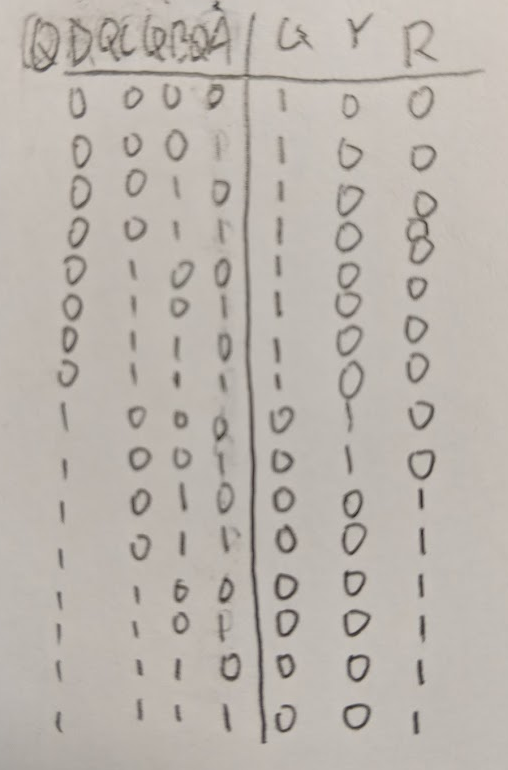 QD QC QB QA | G Y R
0 0 0 0 1 0 0
0 0 0 1 1 0 0
0 0 1 0 1 0 0
0 0 1 1 1 0 0
0 1 0 0 1 0 0
0 1 0 1 1 0 0
0 1 1 0 1 0 0
0 1 1 1 1 0 0
1 0 0 0 0 1 0
1 0 0 1 0 1 0
1 0 1 0 0 0 1
1 0 1 1 0 0 1
1 1 0 0 0 0 1
1 1 0 1 0 0 1
1 1 1 0 0 0 1
1 1 1 1 0 0 1